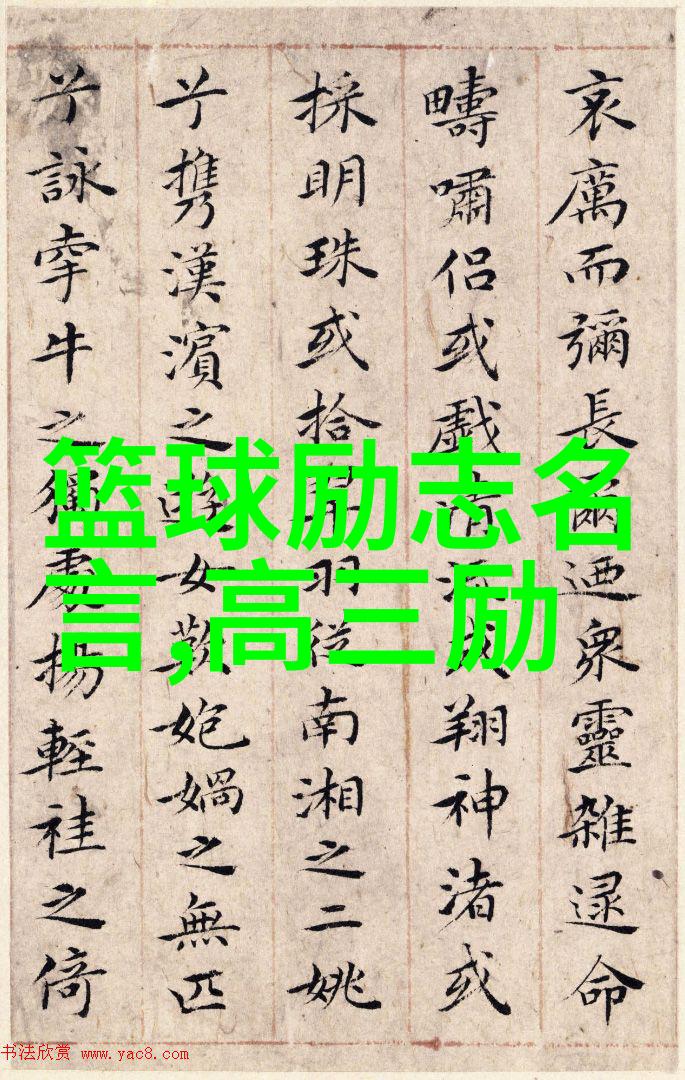 哀厲而彌長爾迺衆靈雜遝命
疇嘯侶或戲清流或翔神渚或
採明珠或拾翠羽從南湘之二姚
兮攜漢濱之遊女歎㚿媧之無匹
兮詠牽牛之獨處揚輕袿之倚
篮球励志名
言,高三励
书法欣赏 www.yac8.com